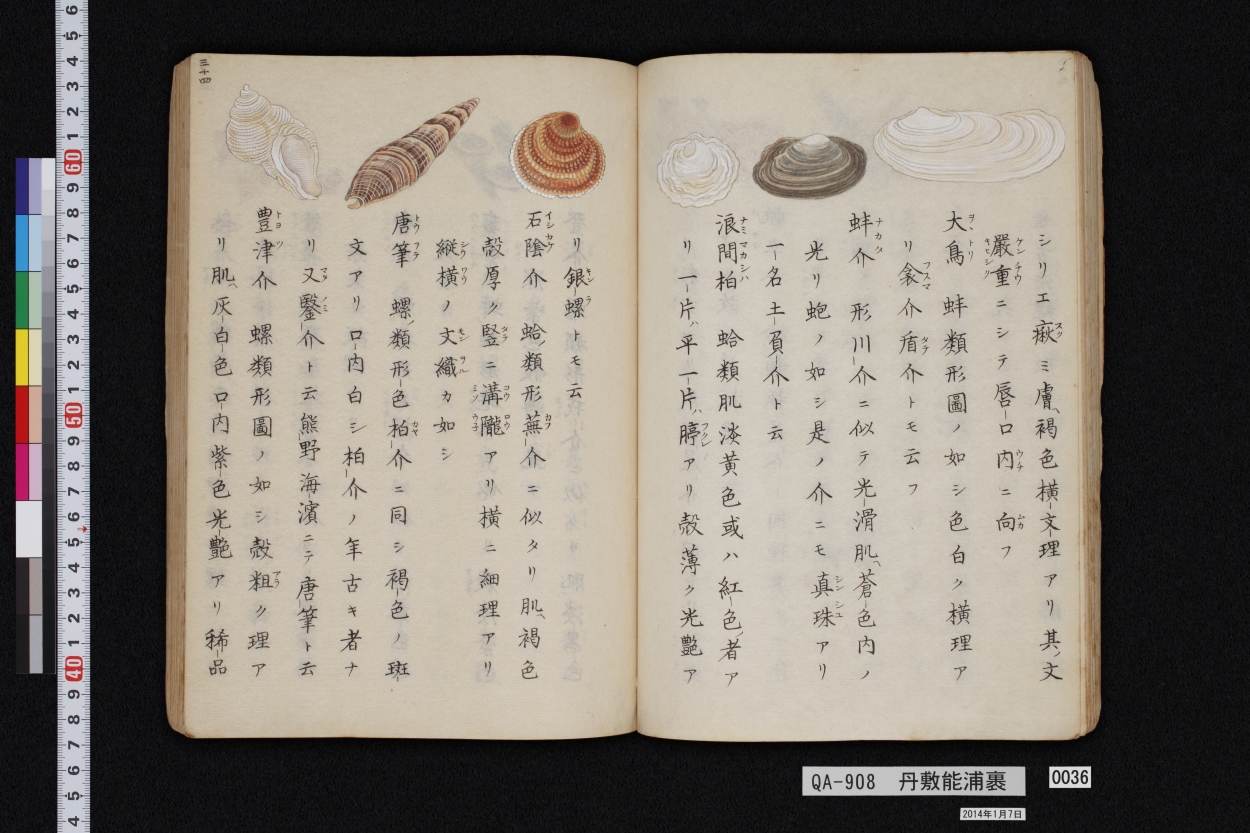 シリエ瘷ミ膚、褐色横文理アリ其ノ文
嚴重ニシテ唇口内ニ向フ
大鳥 蚌類形圖ノ如シ色白ク横理ア
リ衾介盾介トモ云フ
蚌介 形川介ニ似テ光滑肌、蒼色内ノ
光リ鮑ノ如シ是ノ介ニモ真珠アリ
一名土負介ト云
浪間柏 蛤類肌淡黄色或ハ紅色ノ者ア
リ一片ハ平一片ハ アリ殻薄ク光艶ア
リ銀螺トモ云
石陰介 蛤類形蕪介ニ似タリ肌、褐色
殻厚ク竪ニ溝隴アリ横ニ細理アリ
縦横ノ文織カ如シ
唐筆 螺類形色柏介ニ同シ褐色ノ斑
文アリ口内白シ柏介ノ年古キ者ナ
リ又鑿介ト云熊野海濱ニテ唐筆ト云
豊津介 螺類形圖ノ如シ殻粗ク理ア
リ肌、灰白色口内紫色光艶アリ稀品
三十四
QA-908 丹敷能浦裹
0036
2014年1月7日